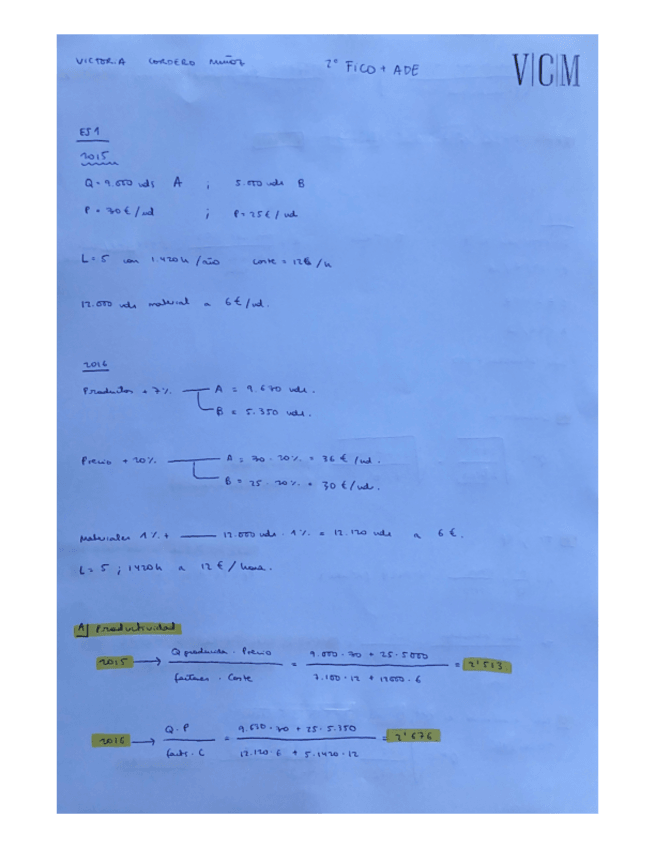 VICTORIA CORDERO MUÑOZ 2º FICO + ADE V|C|M
EJ 1
2015
Q = 9.000 uds A ; 5.000 uds B
P = 30 € / ud ; P = 25 € / ud
L = 5 con 1.420 h / año coste = 12€ / h
12.000 uds material a 6 € / ud.
2016
Productos + 7% A = 9.630 uds.
B = 5.350 uds.
Precio + 20% A = 30 · 20% = 36 € / ud.
B = 25 · 20% = 30 € / ud.
Materiales 1% + 12.000 uds · 1% = 12.120 uds a 6 €.
L = 5 ; 1420 h a 12 € / hora.
A) Productividad
2015 → Q producida · Precio / factores · Coste = 9.000 · 30 + 25 · 5000 / 7.100 · 12 + 12000 · 6 = 2'513
2016 → Q · P / fact · C = 9.630 · 30 + 25 · 5.350 / 12.120 · 6 + 5 · 1420 · 12 = 2'676